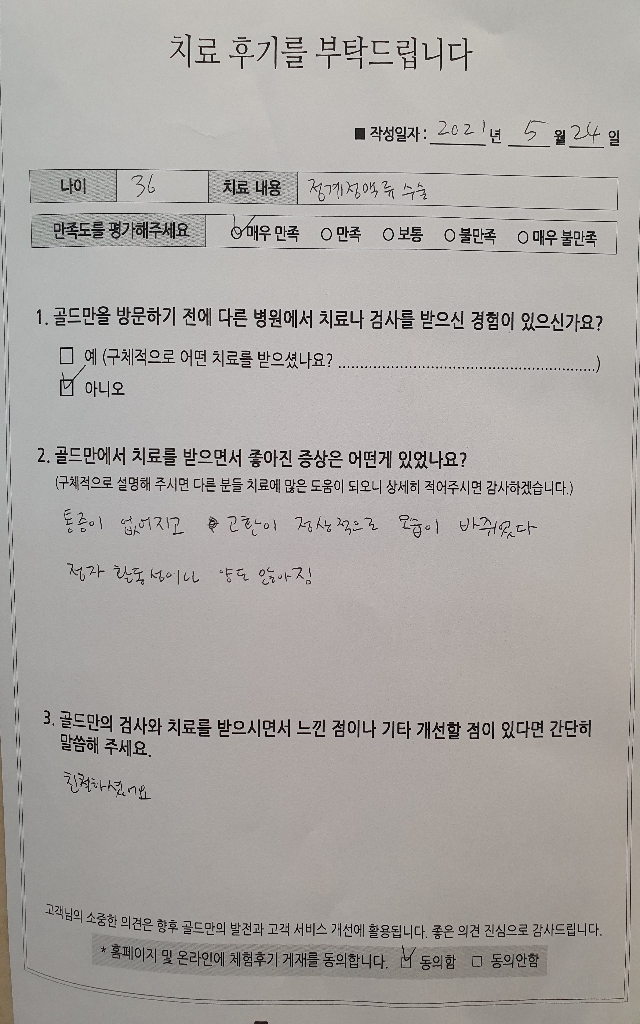 치료 후기를 부탁드립니다
■ 작성일자 : 2021 년 5 월 24 일
나이 36 치료 내용 정계정맥류 수술
만족도를 평가해주세요 매우 만족 만족 보통 불만족 매우 불만족
1. 골드만을 방문하기 전에 다른 병원에서 치료나 검사를 받으신 경험이 있으신가요?
예 (구체적으로 어떤 치료를 받으셨나요? ........................................................)
아니오
2. 골드만에서 치료를 받으면서 좋아진 증상은 어떤게 있었나요?
(구체적으로 설명해 주시면 다른 분들 치료에 많은 도움이 되오니 상세히 적어주시면 감사하겠습니다.)
통증이 없어지고 고환이 정상적으로 모습이 바뀌었다
정자 활동성이나 양도 많아짐
3. 골드만의 검사와 치료를 받으시면서 느낀 점이나 기타 개선할 점이 있다면 간단히
말씀해 주세요.
친절하셨어요
고객님의 소중한 의견은 향후 골드만의 발전과 고객 서비스 개선에 활용됩니다. 좋은 의견 진심으로 감사드립니다.
* 홈페이지 및 온라인에 체험후기 게재를 동의합니다. 동의함 동의안함